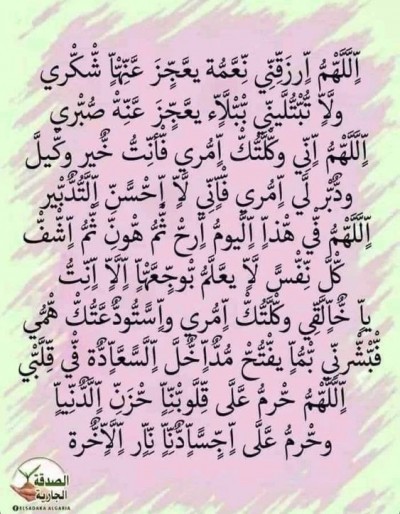 اَللَّهُمَّ اِرزَقنِّي نِّعَّمُة يعَّجِّزَ عَّنِّهٌاِّ شّكْري
ولَّاِّ تُبّتُلَّينِّي بّبّلَّاِّء يعَّجِّزَ عَّنِّهٌ صّبّري
اِّلَّلَّهٌمُ اِّنِّي وكلَّتُك اِّمُري فَّأنِّتُ خٌير وكيلَّ
ودٌبّر لَّي اِّمُري فَّاِّنِّي لَّاِّ اِّحْسِّنِّ اِّلَّتُدٌبّير
اِّلَّلَّهٌمُ فَّي هٌذَاِّ اِّلَّيومُ اِّرحْ ثُّمُ هٌونِّ ثُّمُ اِّشّفَّ
كلَّ نِّفَّسِّ لَّاِّ يعَّلَّمُ بّوجِّعَّهٌاِّ اِّلَّاِّ اِّنِّتُ
ياِّ خٌاِّلَّقي وكلَّتُك اِّمُري واِّسِّتُودٌعَّتُك هٌمُي
فَّبّشّرنِّي بّمُاِّ يفَّتُحْ مُدٌاِّخٌلَّ اِّلَّسِّعَّاِّدٌة فَّي قلَّبّي
اِّلَّلَّهٌمُ حْرمُ عَّلَّى قلَّوبّنِّاِّ حْزَنِّ اِّلَّدٌنِّياِّ
وحْرمُ عَّلَّى اِّجِّسِّاِّدٌنِّاِّ نِّاِّر اِّلَّاِّخٌرة
الصدقة
الجارية
ELSADAKA ALGARIA